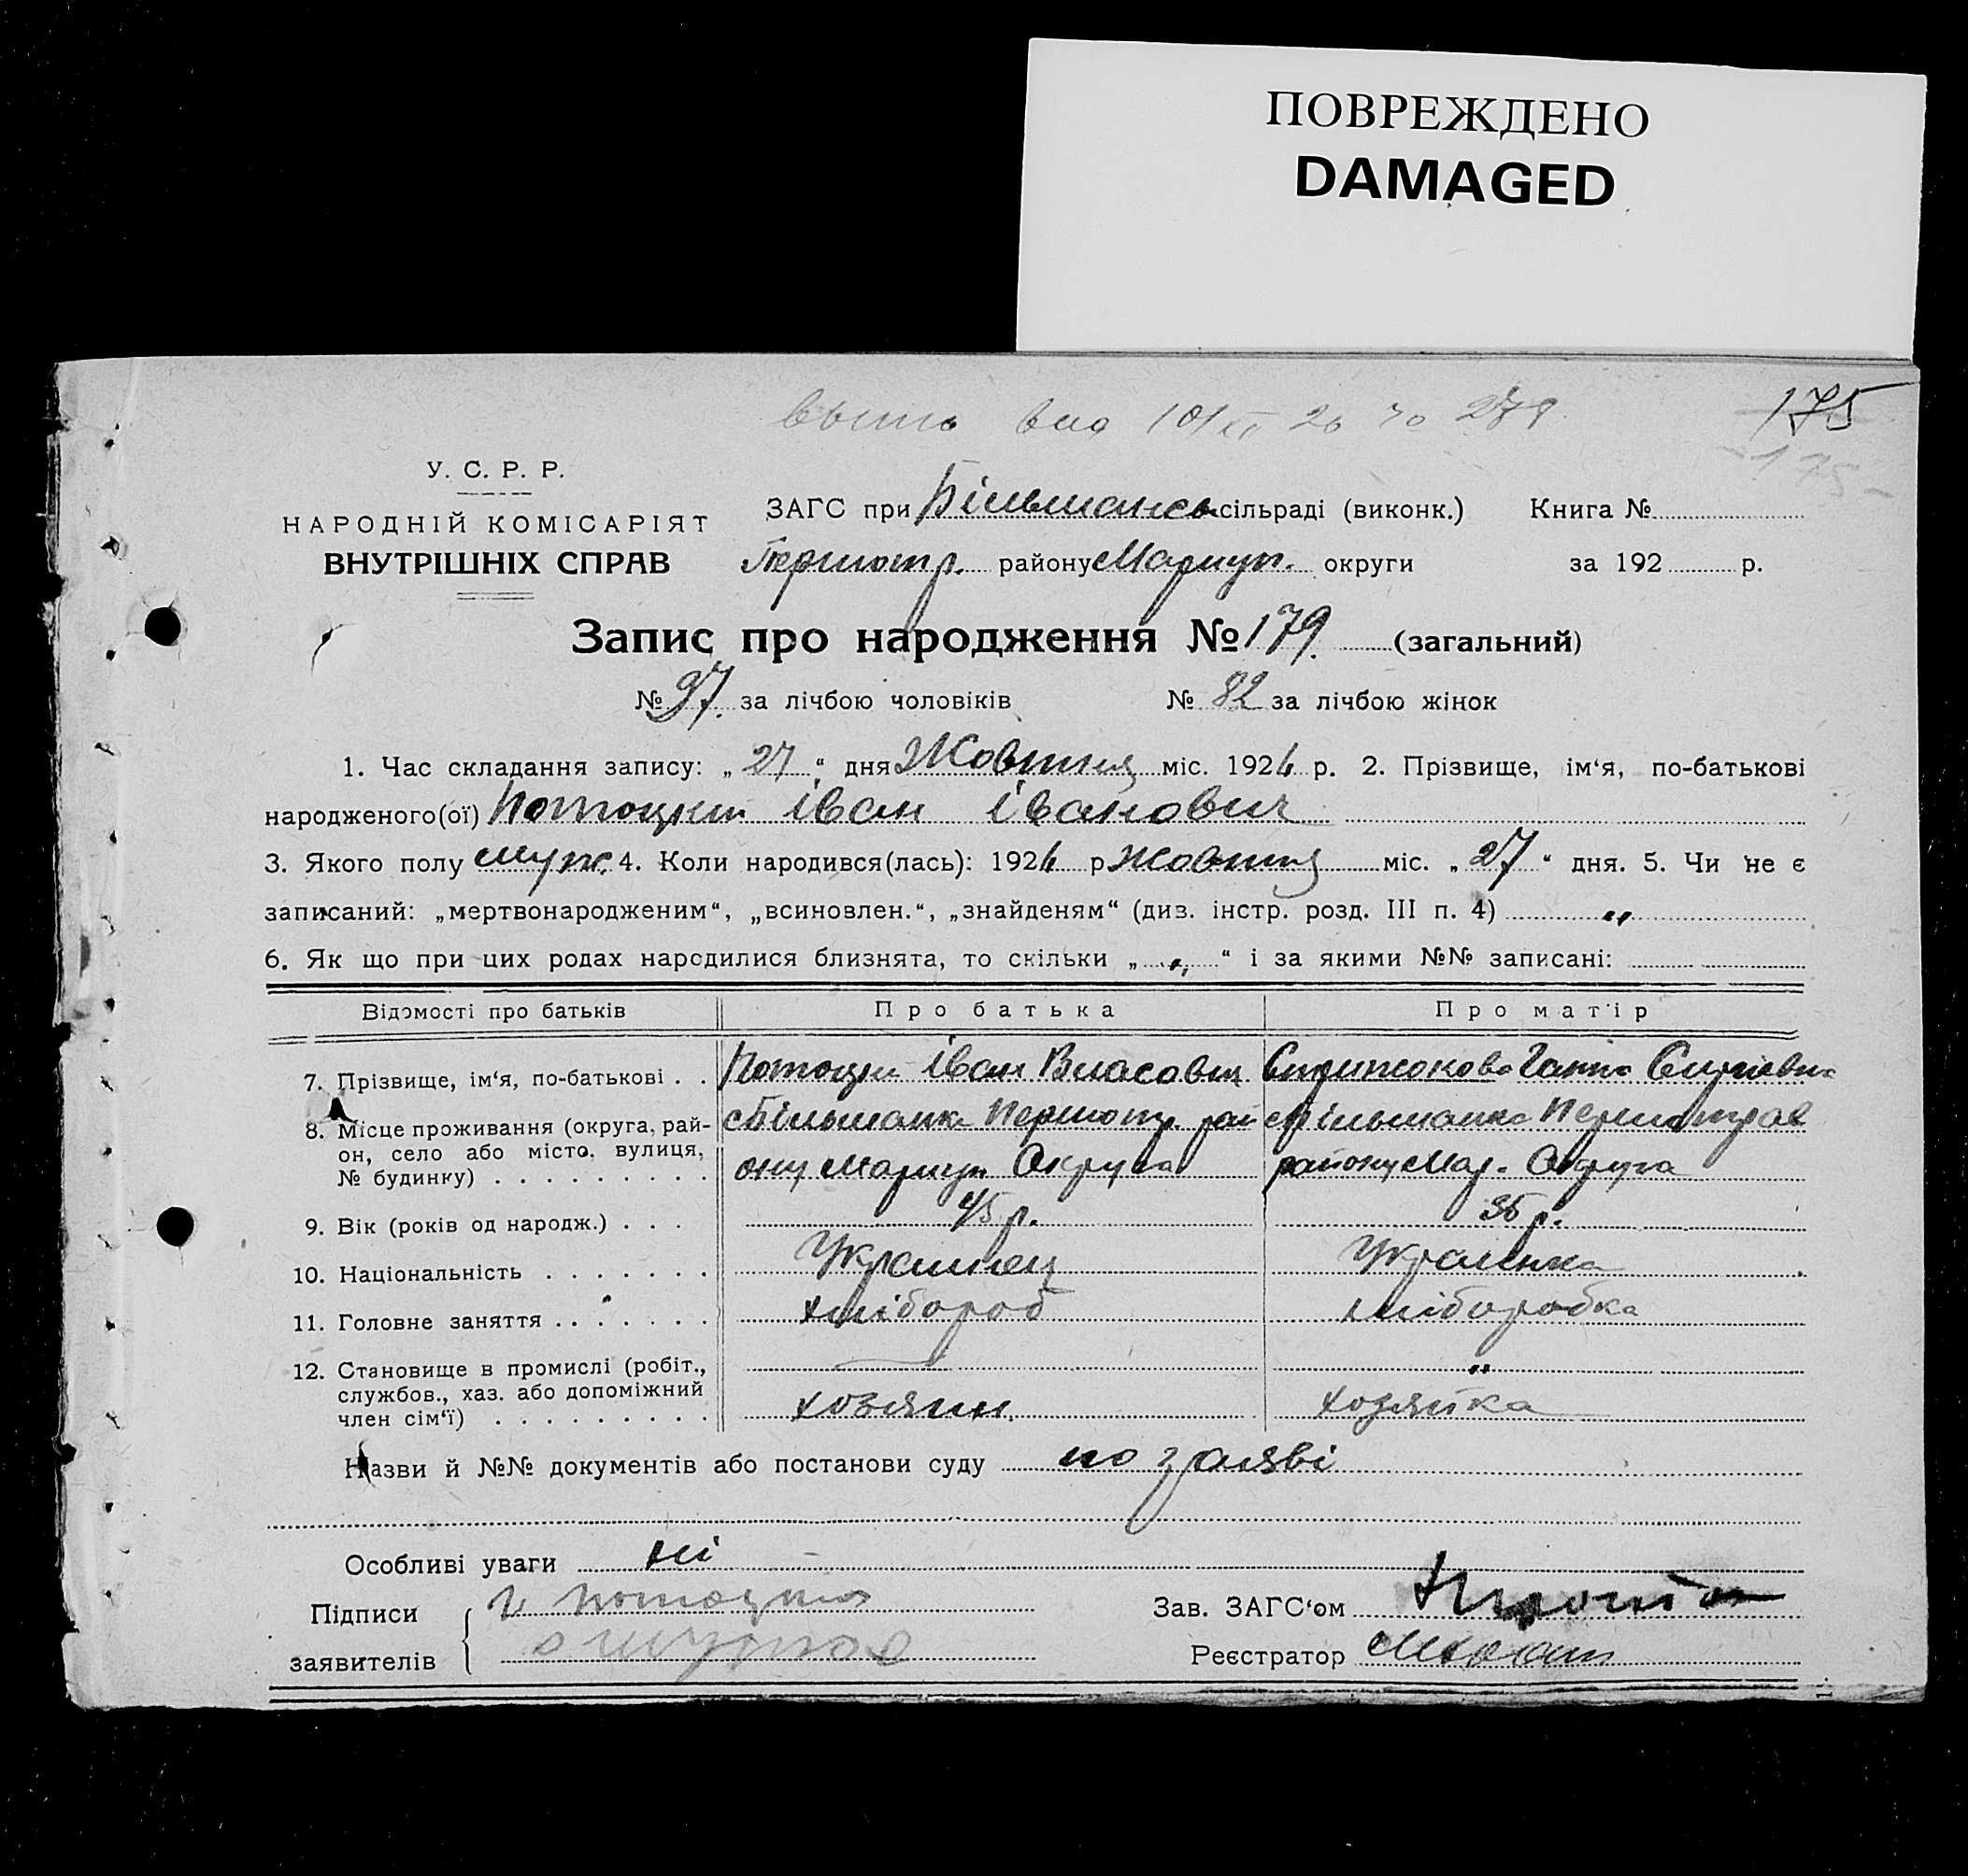 ПОВРЕЖДЕНО
DAMAGED
175
175
У. С. Р. Р.
НАРОДНІЙ КОМІСАРІЯТ
ВНУТРІШНІХ СПРАВ
ЗАГС при Більмансь сільраді (виконк.) Книга №
Першотр. району Мариуп. округи за 192 р.
Запис про народження № 179. (загальний)
№ 97. за лічбою чоловіків № 82 за лічбою жінок
1. Час складання запису: „ 27 “ дня Жовтня міс. 1926 р. 2. Прізвище, ім‘я, по-батькові
народженого(ої) Потоцкий Іван Іванович
3. Якого полу муж. 4. Коли народився(лась): 1926 р Жовтня міс. „ 27 “ дня. 5. Чи не є
записаний: „мертвонародженим“, „всиновлен.“, „знайденям“ (див. інстр. розд. III п. 4) „
6. Як що при цих родах народилися близнята, то скільки „ „ “ і за якими №№ записані:
Відомості про батьків Про батька Про матір
7. Прізвище, ім‘я, по-батькові . . Потоцки Іван Власович Ганна
8. Місце проживання (округа, рай-
он, село або місто, вулиця,
№ будинку) . . . . . . . . .
с Більманка Першотр. рай
ону Мариуп. Округа
с Більманка Першотрав
району Мар. Округа
9. Вік (років од народж.) . . . 45 р. 36 р.
10. Національність . . . . . . . Украинец Украінка
11. Головне заняття . . . . . . . хлібороб хліборобка
12. Становище в промислі (робіт.,
службов., хаз. або допоміжний
член сім‘ї) . . . . . . . . .
„
хозяин. хозяйка
Назви й №№ документів або постанови суду по заяві
Особливі уваги ні
Підписи
заявителів
Зав. ЗАГС‘ом
Реєстратор